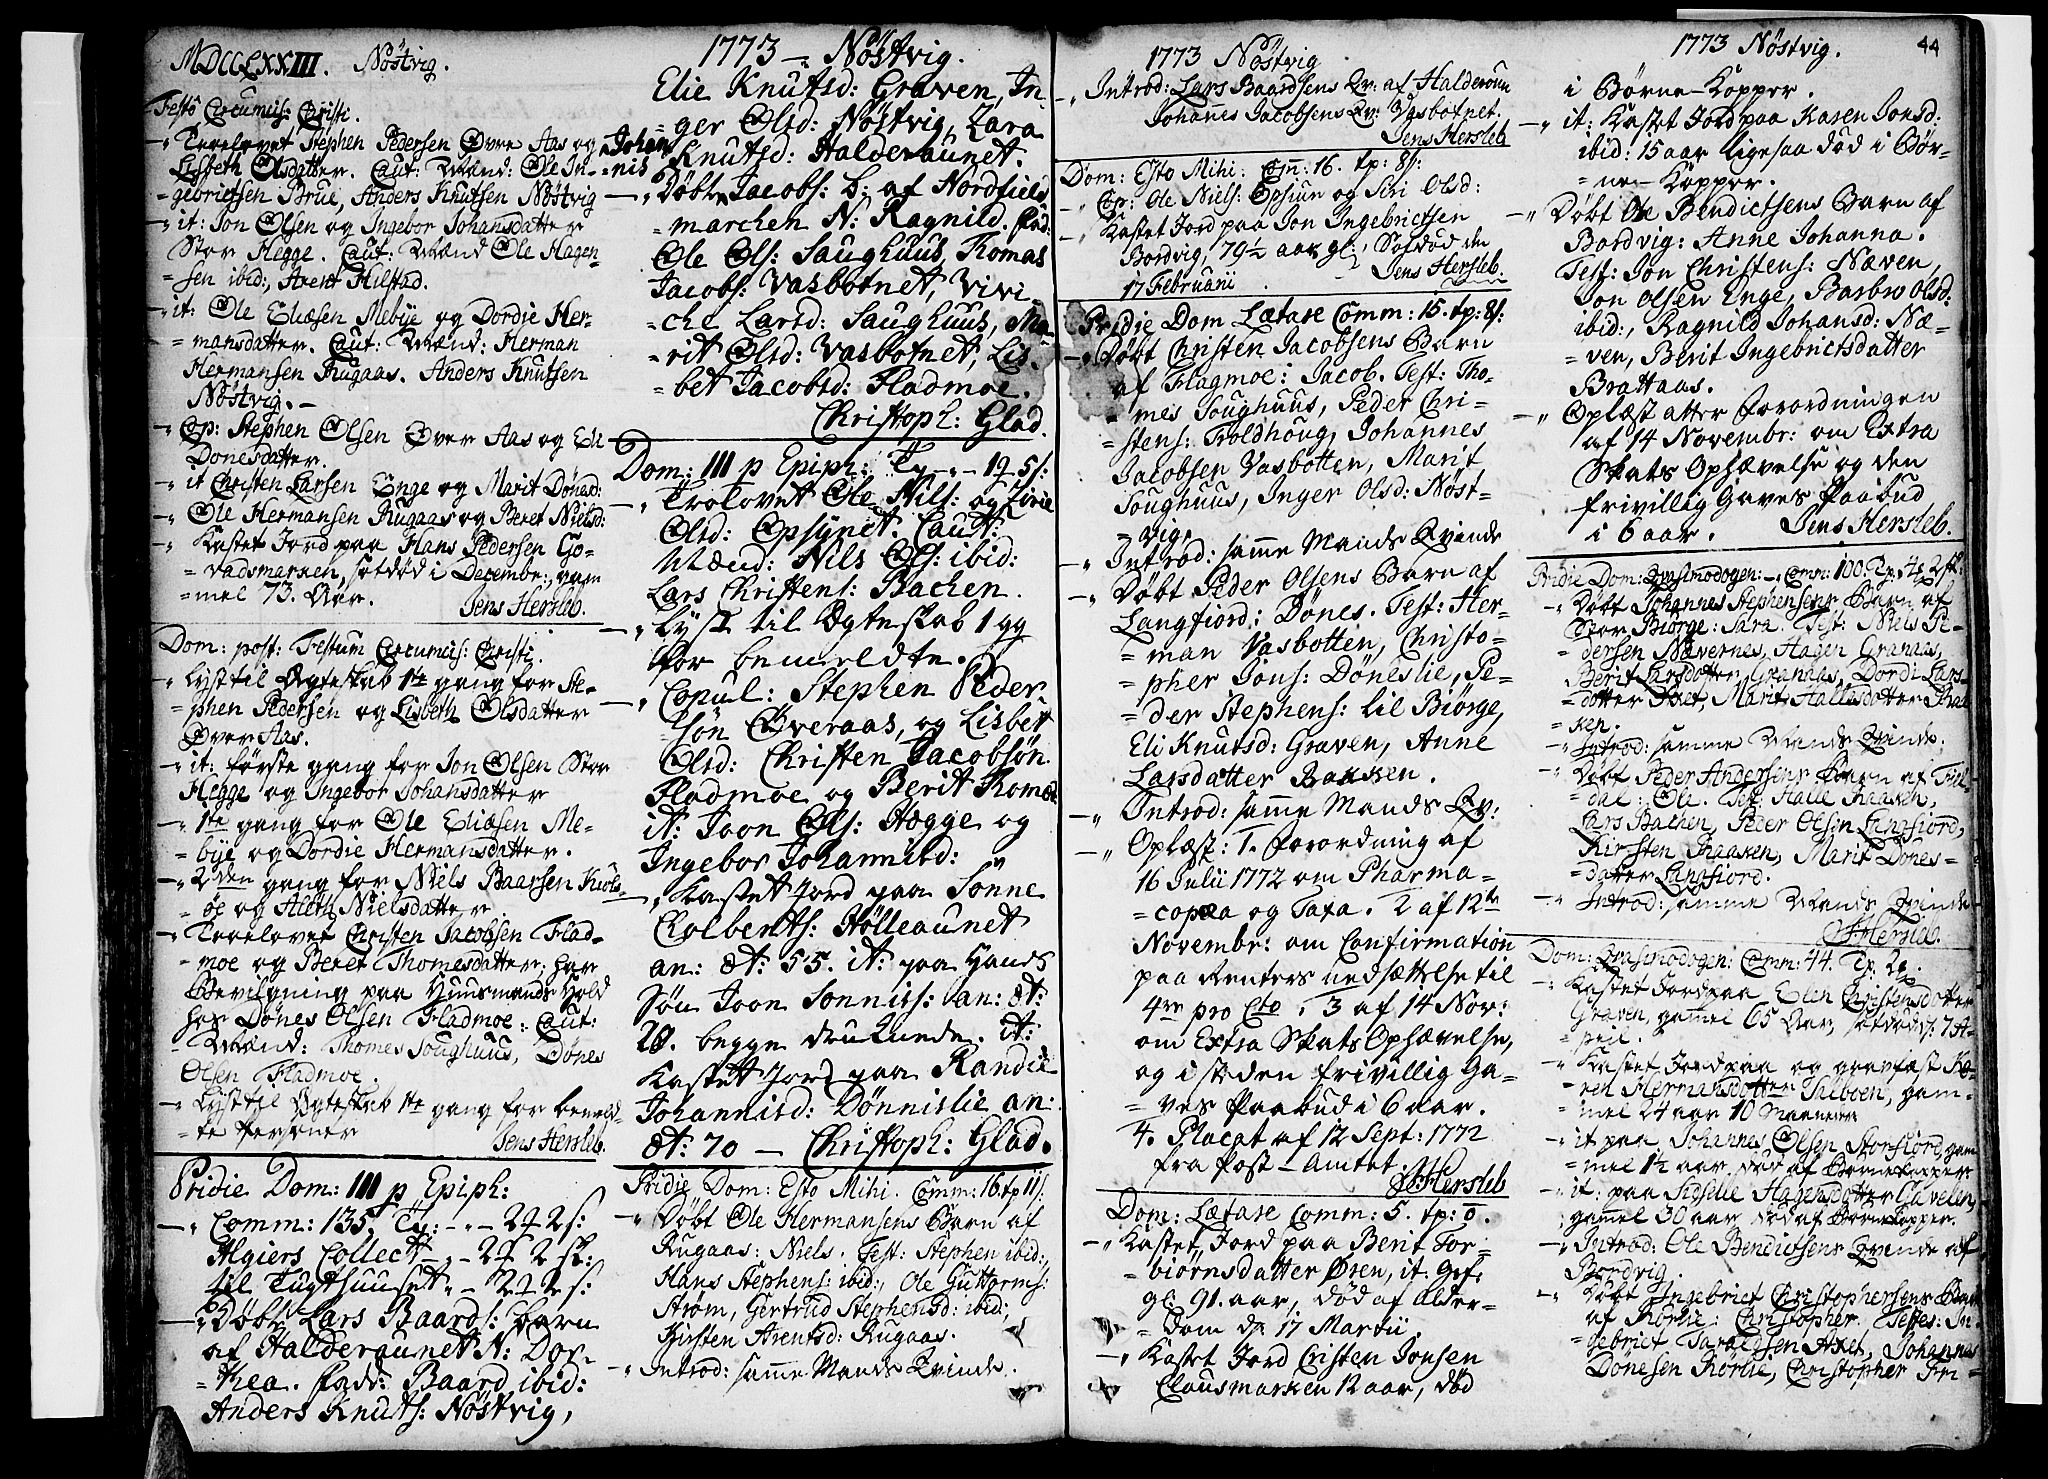 MDCCLXXIII. Nöstvig.
Festo Circumcis: Christi.
Troelovet Stephen Pedersen Øvre Aas og
Lisbeth Olsdatter. Caut: Mænd: Ole In-
=gebrictsen Brue, Anders Knutsen Nöstvig
it: Jon Olsen og Ingebor Johansdatter
Stor Hegge. Caut: Mænd Ole Hagen-
=sen ibid:, Arent Hilstad.
it: Ole Eliæsen Mebye og Dordie Her-
=mansdatter. Caut: Mænd: Herman
Hermansen Rugaas. Anders Knutsen
Nöstvig. –
Cop: Stephen Olsen Øver Aas og Eli
Donesdatter.
it Christen Larsen Enge og Marit Dönesd:
Ole Hermansen Rugaas og Beret Nielsd:
Kastet Jord paa Hans Pedersen Go-
=vadsmarken, sotdöd i Decembr:, gam
=mel 73. Aar. Jens Hersleb.
Dom: post: Festum Circumcis: Christi.
Lyst til Ægteskab 1te gang for Ste-
=phen Pedersen og Lisbeth Olsdatter
Øver Aas.
it: første gang for Jon Olsen Stor
Hegge og Ingebor Johansdatter
1te gang for Ole Eliæsen Me-
=bye og Dordie Hermansdatter.
2den gang for Niels Baarsen
og Aleth Nielsdatter
Troelovet Christen Jacobsen Flad-
=moe og Beret Thomesdatter, har
Bevilgning paa Huusmands Hold
hos Dönes Olsen Fladmoe: Caut:
Mænd: Thomes Soughuus, Dönes
Olsen Fladmoe.
Lyst til Ægteskab 1te gang for bemeld-
=te Personer Jens Hersleb.
Pridie Dom: III p Epiph:
Comm: 135. Tp: - - 2 2 s:
Algiers Collect - 2 2 sk:
til Tugthuuset - 2 2 s:
Döbt Lars Baards: barn
af Halderaunet N: Dor-
=thea. Fadr: Baard ibid:
Anders Knuts: Nöstvig,
1773 – Nöstvig.
Elie Knutsd: Graven, In-
=ger Olsd: Nöstvig, Zara
Knutsd: Halderaunet.
Döbt Johannis Jacobs: b: af Nordfield
marchen N: Ragnild. Fad:
Ole Ols: Saughuus, Thomas
Jacobs: Vasbotnet, Vivi-
=che Larsd: Saughuus, Ma-
=rit Olsd: Vasbotnet, Lis-
=bet Jacobsd: Fladmoe.
Christoph: Glad.
Dom: III p Epiph: Tp - - 19 5 s:
Trolovet Ole Nils: og Sirie
Olsd: Opsynet. Caut:
Mænd: Nils Ols: ibid:
Lars Christens: Bachen.
Lyst til Ægteskab 1 gg
for bemeldte.
Copul: Stephen Peder
sön Øveraas, og Lisbet
Olsd: Christen Jacobsön
Fladmoe og Berit Thomæ
it: Joon Ols: Hægge og
Ingebor Johannisd:
Kastet Jord paa Sönne
Colbents: Hölleaunet
an: æt: 55. it: paa Hands
Sön Joon Sönnis: an: æt:
20. begge druknede. it:
Kastet Jord paa Randie
Johannisd: Dönnislie an:
æt: 70 – Christoph: Glad.
Pridie Dom: Esto Mihi. Comm: 16. tp 11 s:
Döbt Ole Hermansens Barn af
Rugaas: Niels. Test: Stephen ibid:,
Hans Stephens: ibid:, Ole Guttorms:
Ström, Gertrud Stephensd: ibid:,
Kirsten Arentsd: Rugaas.
Introd: samme Mands Qvinde.
1773 Nöstvig
Introd: Lars Baardsens Qv: af Halderoun
Johannes Jacobsens Qv: Vasbotnet.
Jens Hersleb
Dom: Esto Mihi. Com: 16. tp: 8 s:
Cop: Ole Niels: Opsiun og Siri Olsd:
Kastet Jord paa Jon Ingebrictsen
Bordvig, 79½ aar gl:, Sotdöd den
17 Februarii. Jens Hersleb.
Pridie Dom Lætare Comm: 15. tp: 8 s:
Döbt Christen Jacobsens Barn
af Flagmoe: Jacob. Test: Tho-
=mes Soughuus, Peder Chri-
=stens: Troldhoug, Johannes
Jacobsen Vasbotten, Marit
Soughuus, Inger Olsd: Nöst-
=vig.
Introd: samme Mands Qvinde
Döbt Peder Olsens Barn af
Langfiord: Dönes. Test: Her-
=man Vasbotten, Christo-
=pher Jons: Döneslie, Pe-
=der Stephens: lil Biörge,
Eli Knutsd: Graven, Anne
Larsdatter Bakken.
Introd: samme Mands Qv:
Oplæst: 1. Forordning af
16 Julii 1772 om Pharma-
=copæa og Taxa. 2 af 12te
Novembr: om Confirmation
paa Renters nedsættelse til
4re pro Cto. 3 af 14 Nov:
om Extra Skats Ophævelse,
og i steden frivillig Ga-
=ves Paabud i 6 aar.
4. Placat af 12 Sept: 1772
fra Post-Amtet.
J Hersleb
Dom: Lætare Comm: 5. tp: 0.
Kastet Jord paa Berit Tor-
=biörnsdatter Ören, it: gef:
gl: 91. aar, död af Alder-
=dom d: 17 Martii.
Kastet Jord Cristen Jonsen
Clausmarken 12 aar, död
1773 Nöstvig. 44
i Börne-Kopper.
it: Kastet Jord paa Karen Jonsd:
ibid: 15 aar ligesaa död i Bör-
=ne-Kopper.
Döbt Ole Bendictsens Barn af
Bordvig: Anne Johanna.
Test: Jon Christens: Næven,
Jon Olsen Enge, Barbro Olsd:
ibid:, Ragnild Johansd: Næ-
=ven, Berit Ingebrictsdatter
Brattaas.
Oplæst atter Forordningen
af 14 Novembr: om Extra
Skats Ophævelse og den
frivillig Gaves Paabud
i 6 aar. Jens Hersleb.
Pridie Dom: Qvasimodogen: Comm: 100. Tp. 4 2 sk:
Döbt Johannes Stephensens Barn af
Stor Biörge: Sara. Test: Niels Pe-
=dersen Nævernes, Hagen Granaas,
Berit Larsdotter Granaas, Dordi Lars-
=dotter Axet, Marit Hallesdatter Praa
ken.
Introd: samme Mands Qvinde.
Döbt Peder Andersens Barn af
=dal: Ole. Test: Halle Praaken,
Lars Bachen, Peder Olsen Langfiord,
Kirsten Praaken, Marit Dönes-
=datter Langfiord.
Introd: samme Mands Qvinde
J Hersleb.
Dom: Qvasimodogen: Comm: 44. Tp.
Kastet Jord paa Elen Christensdotter
Graven, gammel 65 Aar, sotdöd d: 7 A-
=pril.
Kastet Jord paa og gravfæst Ka-
=ren Hermansdotter Thiboen, gam-
=mel 24 aar 10 Maaneder
it paa Johannes Olsen Storfiord, gam
=mel 1½ aar död af Börnekopper
it: paa Sidselle Hagensdotter Gavelen,
gamel 30 aar död af Börnekopper.
Introd: Ole Bendictsens Qvinde af
Bordvig.
Döbt Ingebrict Christophersens Barn
af Rörlie: Christopher. Testes: In-
=gebrict Taraldsen Axet, Johannes
Dönesen Rörlie, Christopher Tri-